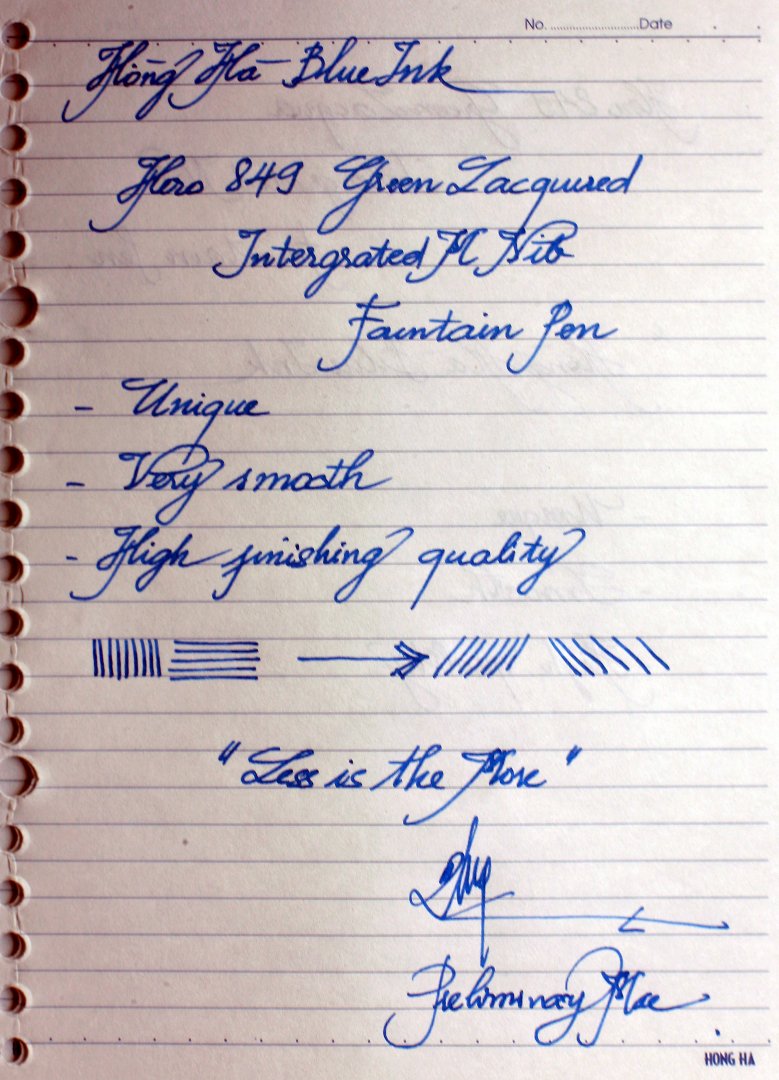 No. ............................Date
Hồng Hà - Blue Ink
Hero 849 Green Lacquered
Intergrated M Nib
Fountain Pen
- Unique
- Very smooth
- High finishing quality
"Less is the More"
Preliminary Mae
HONG HA